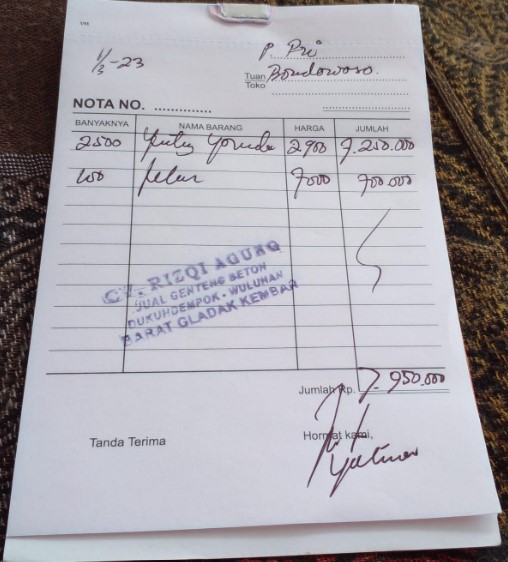 1/3-23
P. Pri
Tuan Bondowoso.
Toko
NOTA NO. ..............
BANYAKNYA NAMA BARANG HARGA JUMLAH
2500 2900 7.250.000
100 7000 700.000
CV. RIZQI AGUNG
JUAL GENTENG BETON
DUKUHDEMPOK - WULUHAN
BARAT GLADAK KEMBAR
Jumlah Rp. 7.950.000
Tanda Terima Hormat kami,